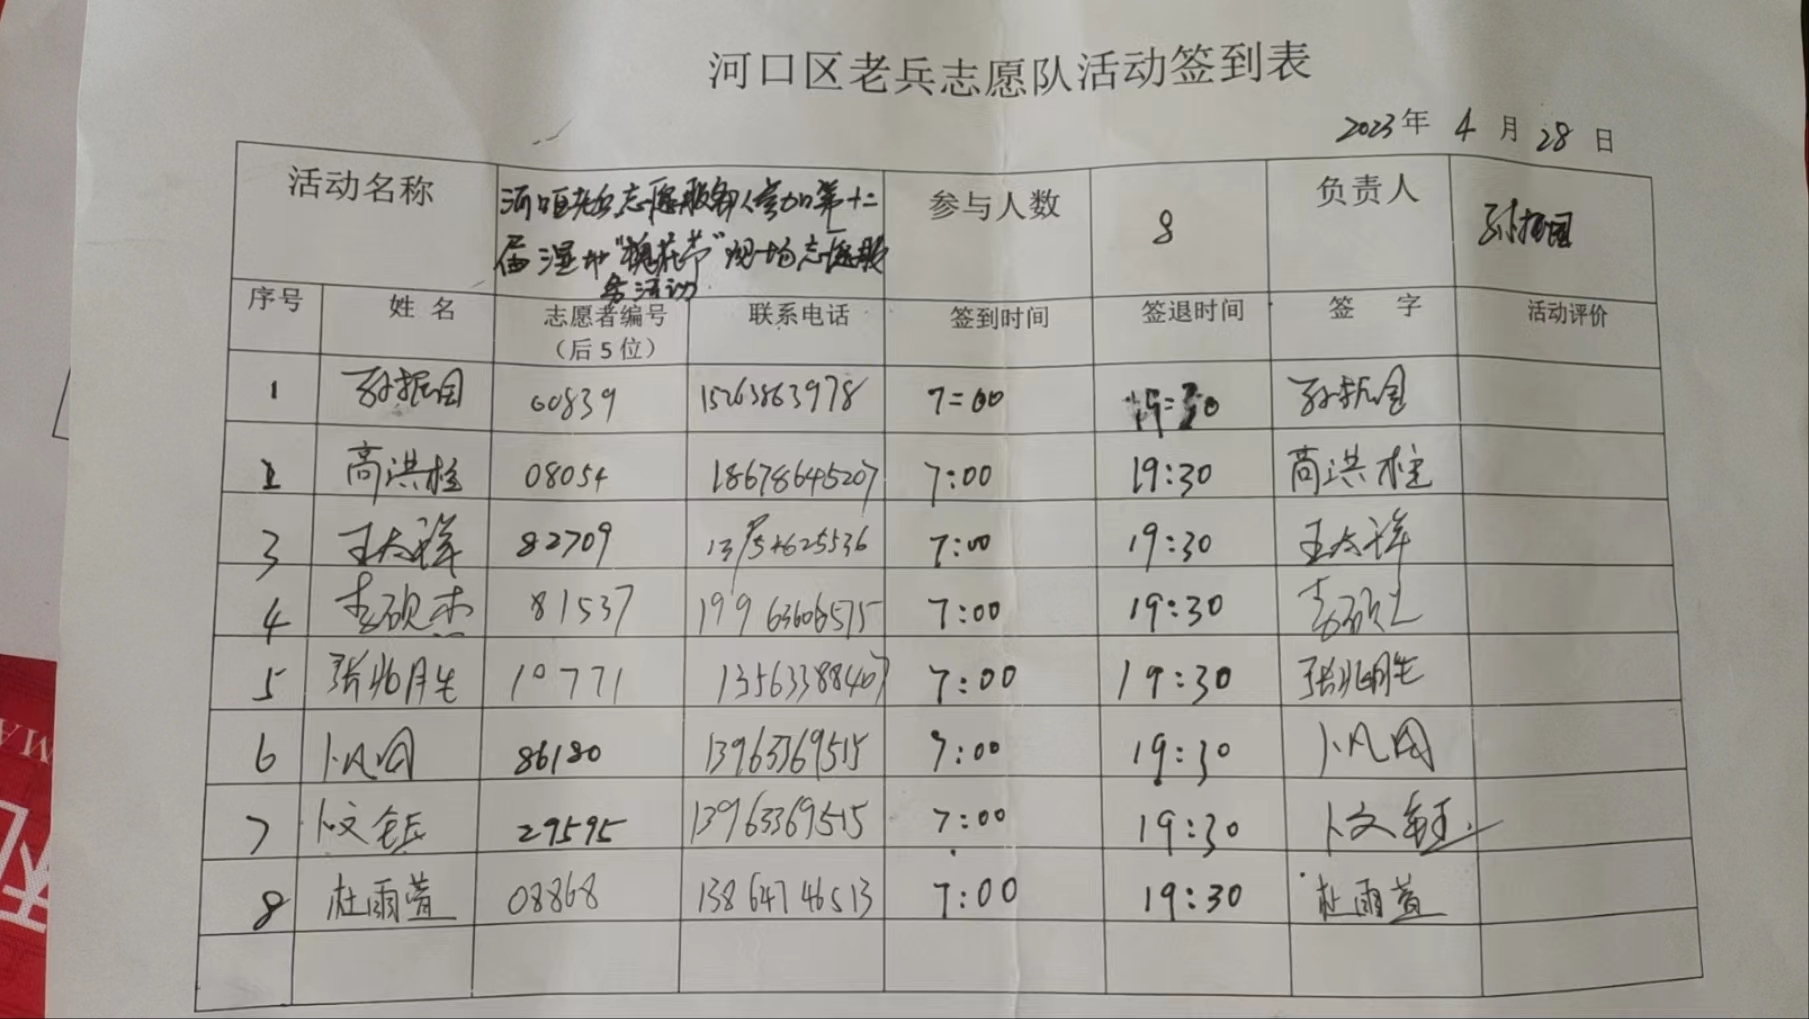 河口区老兵志愿队活动签到表
2023年 4 月 28 日
活动名称 河口区老兵志愿服务队参加第十二届湿地“槐花节”现场志愿服务活动 参与人数 8 负责人 孙振国
序号 姓 名 志愿者编号（后5位） 联系电话 签到时间 签退时间 签 字 活动评价
1 孙振国 00839 15263863978 7:00 19:30 孙振国
2 高洪柱 08054 18678645207 7:00 19:30 高洪柱
3 王太祥 82709 7:00 19:30 王太祥
4 李砚杰 81537 19963606575 7:00 19:30
5 张兆胜 10771 13563388407 7:00 19:30 张兆胜
6 卜凡国 86180 13963369515 7:00 19:30 卜凡国
7 卜文钰 29595 13963369515 7:00 19:30 卜文钰
8 杜雨萱 08868 13864746513 7:00 19:30 杜雨萱